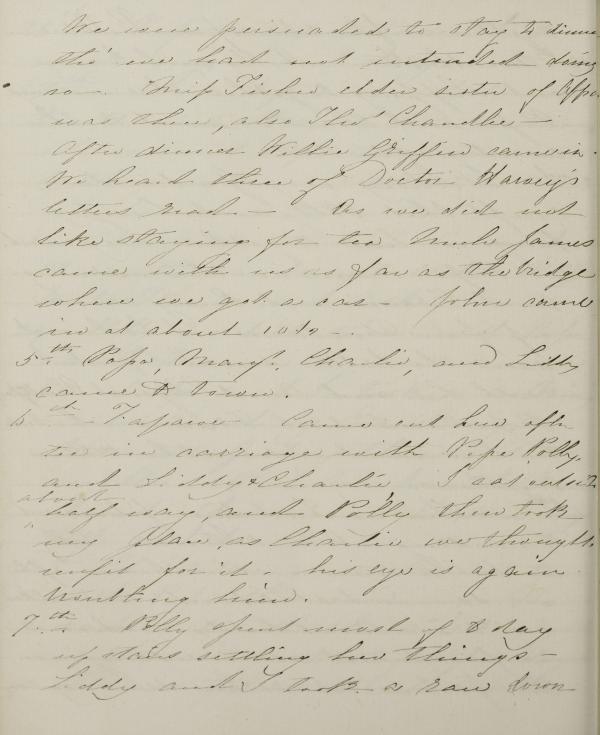 We were persuaded to stay to dinner
tho' we had not intended doing
so - Miss Fisher elder sister of
was there, also Thos Chandlee -
After dinner Willie Griffen came in.
We heard there of Doctor Harvey's
letters read - As we did not
like staying for tea Uncle James
came with us as far as the bridge
where we got a car - John came
in at about 10 1/2 -
5th. Papa, Margt, Charlie, and Liddy
came to town.
6th - Came out here after
tea in carriage with Papa Polly,
and Liddy & Charlie I sat outside
about
half way, and Polly then took
my place, as Charlie we thought
unfit for it - his eye is again
troubling him.
7th - Polly spent most of & day
upstairs settling her things -
Liddy and I took a row down